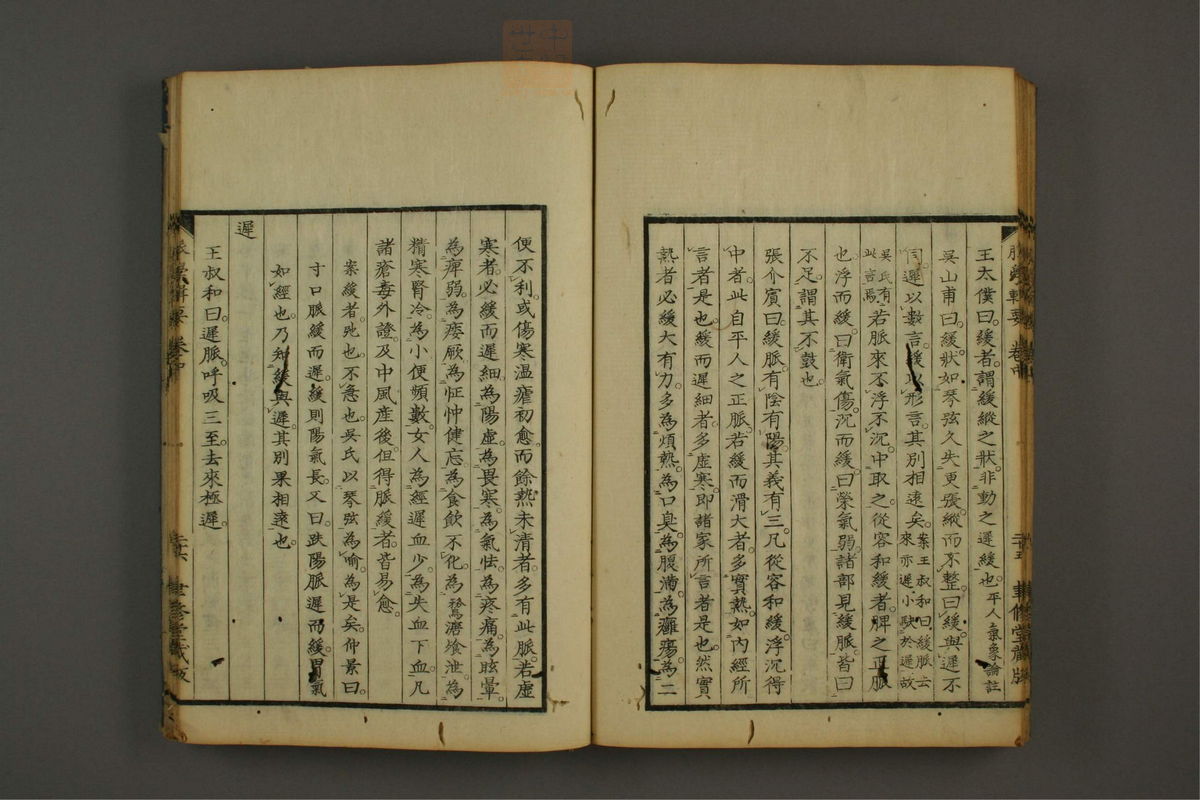 王太僕曰緩者謂緩縱之狀非動之遲緩也平人氣象論註
吳山甫曰緩狀如琴弦久失更張縱而不整曰緩與遲不
同遲以數言緩以形言其別相遠矣案王叔和曰緩脈去來亦遲小駃於遲故
吳氏有此言焉若脈來不浮不沉中取之從容和緩者脾之正脈
也浮而緩曰衛氣傷沉而緩曰榮氣弱諸部見緩脈皆曰
不足謂其不鼓也
張介賓曰緩脈有陰有陽其義有三凡從容和緩浮沉得
中者此自平人之正脈若緩而滑大者多實熱如內經所
言者是也緩而遲細者多虛寒即諸家所言者是也然實
熱者必緩大有力多為煩熱為口臭為腹滿為癰瘍為二
便不利或傷寒溫瘧初愈而餘熱未清者多有此脈若虛
寒者必緩而遲細為陽虛為畏寒為氣怯為疼痛為眩暈
為痺弱為痿厥為怔忡健忘為食飲不化為鶩溏飧泄為
精寒腎冷為小便頻數女人為經遲血少為失血下血凡
諸瘡毒外證及中風產後但得脈緩者皆易愈
案緩者弛也不急也吳氏以琴弦為喻為是矣仲景曰
寸口脈緩而遲緩則陽氣長又曰趺陽脈遲而緩胃氣
如經也乃知緩與遲其別果相遠也
遲
王叔和曰遲脈呼吸三至去來極遲